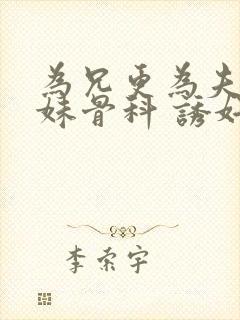 為兄更為夫
妹骨科 誘奸
李索宇